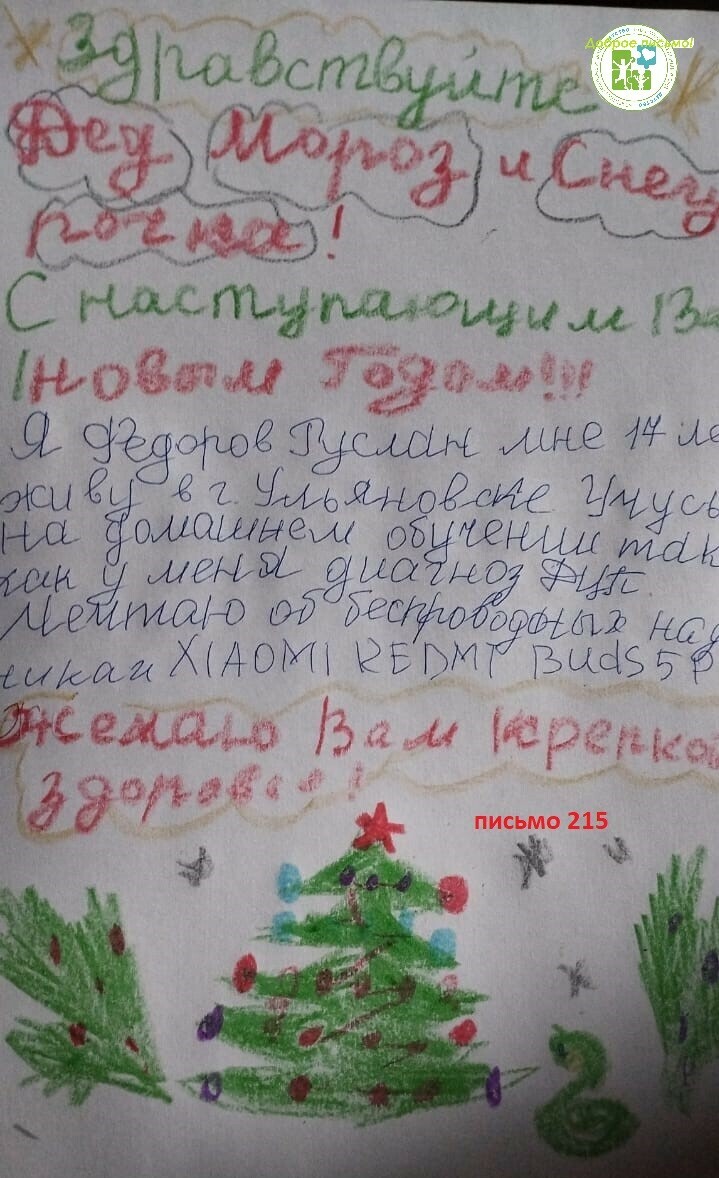 Доброе письмо!
Здравствуйте
Дед Мороз и Снегу
рочка!
С наступающим Ва
Новым Годом!!!
Я Фёдоров Руслан мне 17 ле
живу в г. Ульяновске Учусь
на домашнем обучении так
как у меня диагноз ДЦП
Мечтаю об беспроводных науш
никах XIAOMI REDMI Buds 5 P
Желаю Вам крепкого
здоровья!
письмо 215